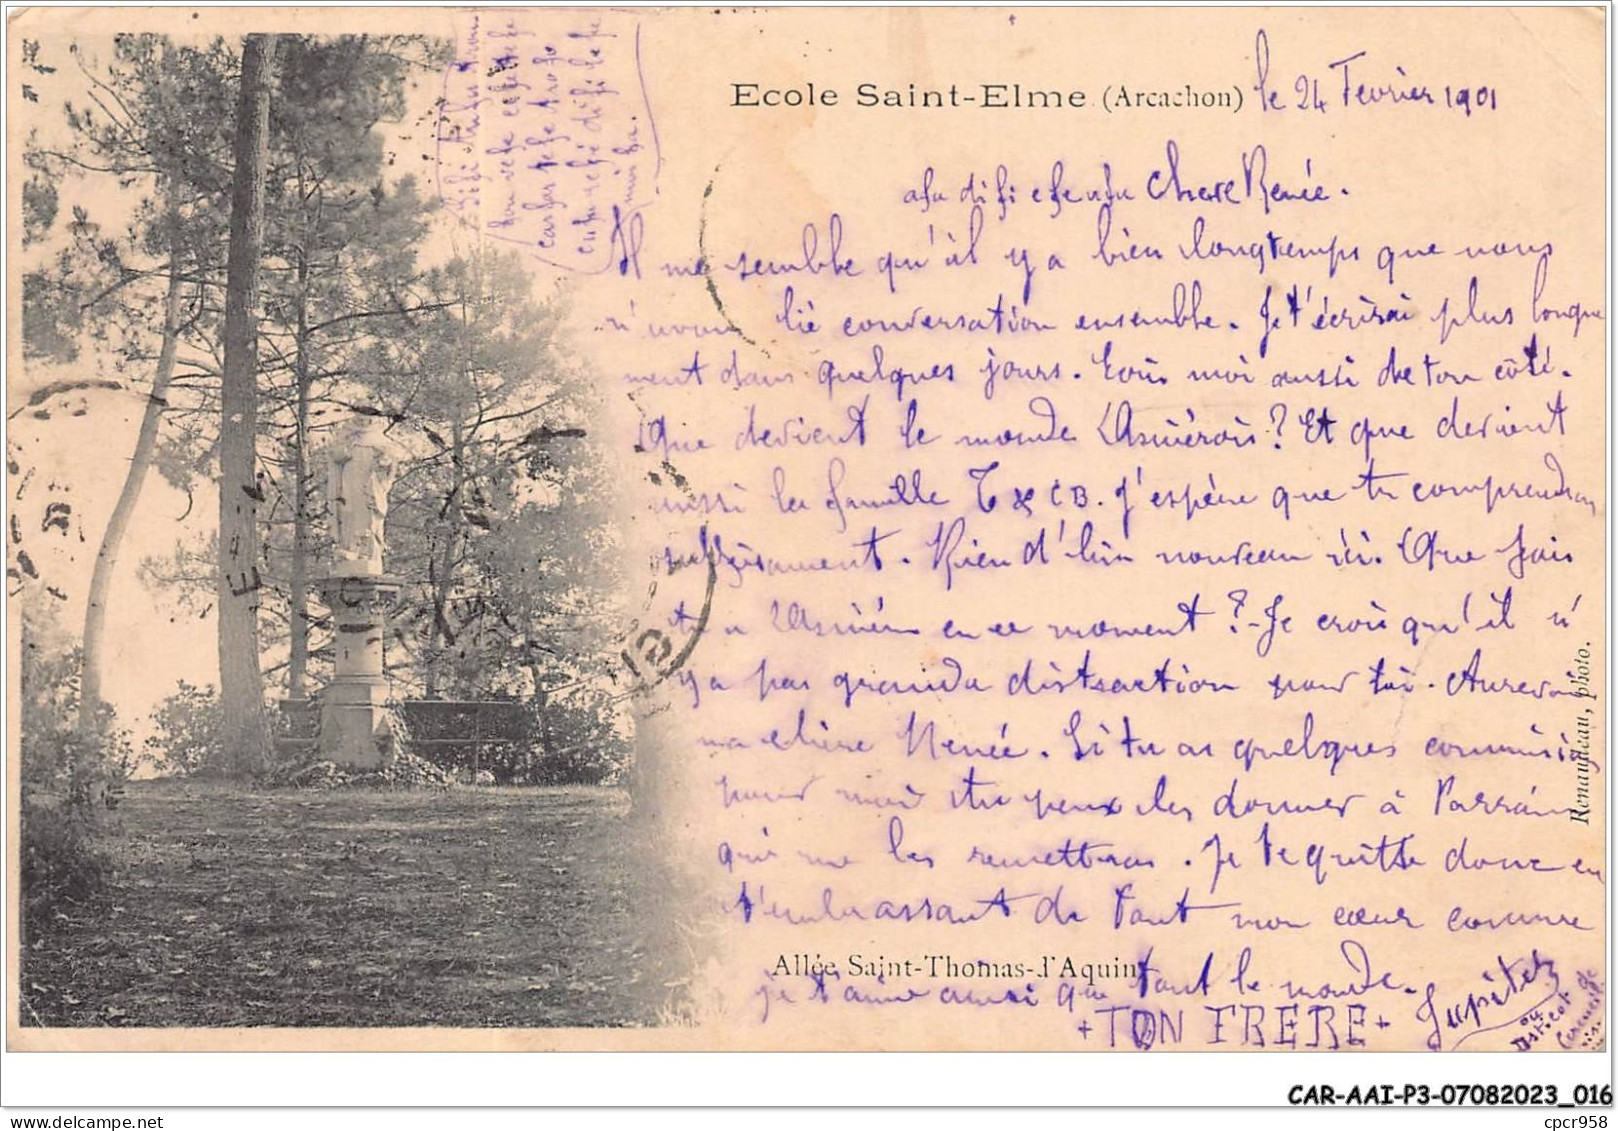 Ecole Saint-Elme (Arcachon) le 24 Fevrier 1901
Chere Renée.
Il me semble qu'il y a bien longtemps que nous
n'avons lié conversation ensemble. Je t'écrirai plus longue
ment dans quelques jours. Ecris moi aussi de ton côté.
Que devient le monde Asniérois? Et que devient
aussi la famille T & CB. J'espère que tu comprendras
suffisamment. Rien d'bien nouveau ici. Que fais
tu a Asnières en ce moment? - Je crois qu'il n'
y a pas grande distraction pour toi. Aurevoir
ma chère Renée. Si tu as quelques commissions
pour moi tu peux les donner à Parrain
qui me les remettras. Je te quitte donc en
t'embrassant de tout mon cœur comme
Allée Saint-Thomas-d'Aquin
je t'aime ainsi que tout le monde.
+TON FRERE+ Jupiter
ou
Renaudeau, photo.
CAR-AAI-P3-07082023_016
cpcr958